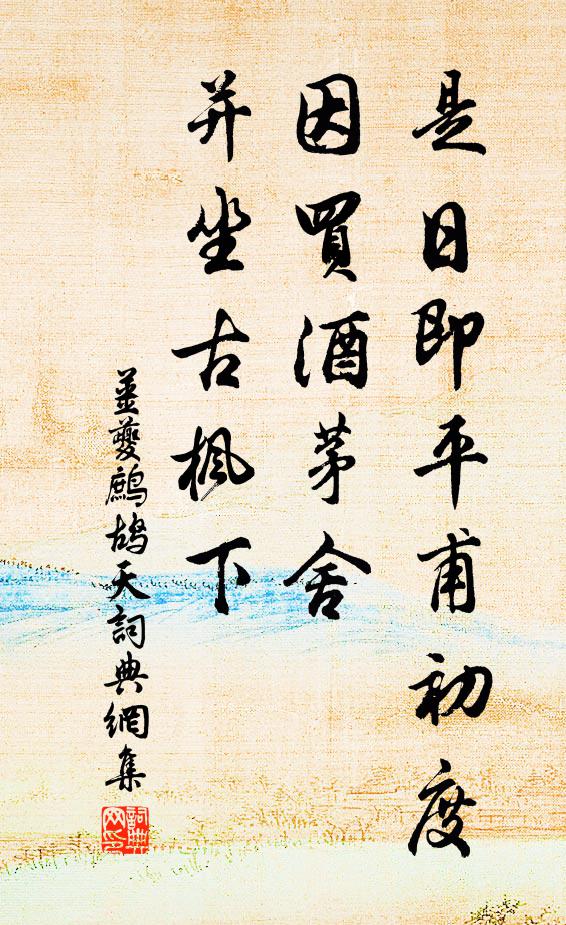 是日即平甫初度
因買酒茅舍
并坐古楓下
薑夔鷓鴣天詞典網集
詞典网印